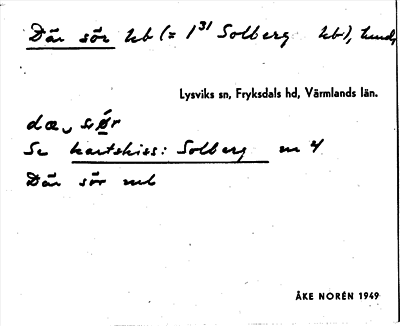 Där sör hb (= 1³¹ Solberg hb), hmds
Lysviks sn, Fryksdals hd, Värmlands län.
dæ, sør
Se kartskiss: Solberg m 4
Där sör mb
ÅKE NORÉN 1949